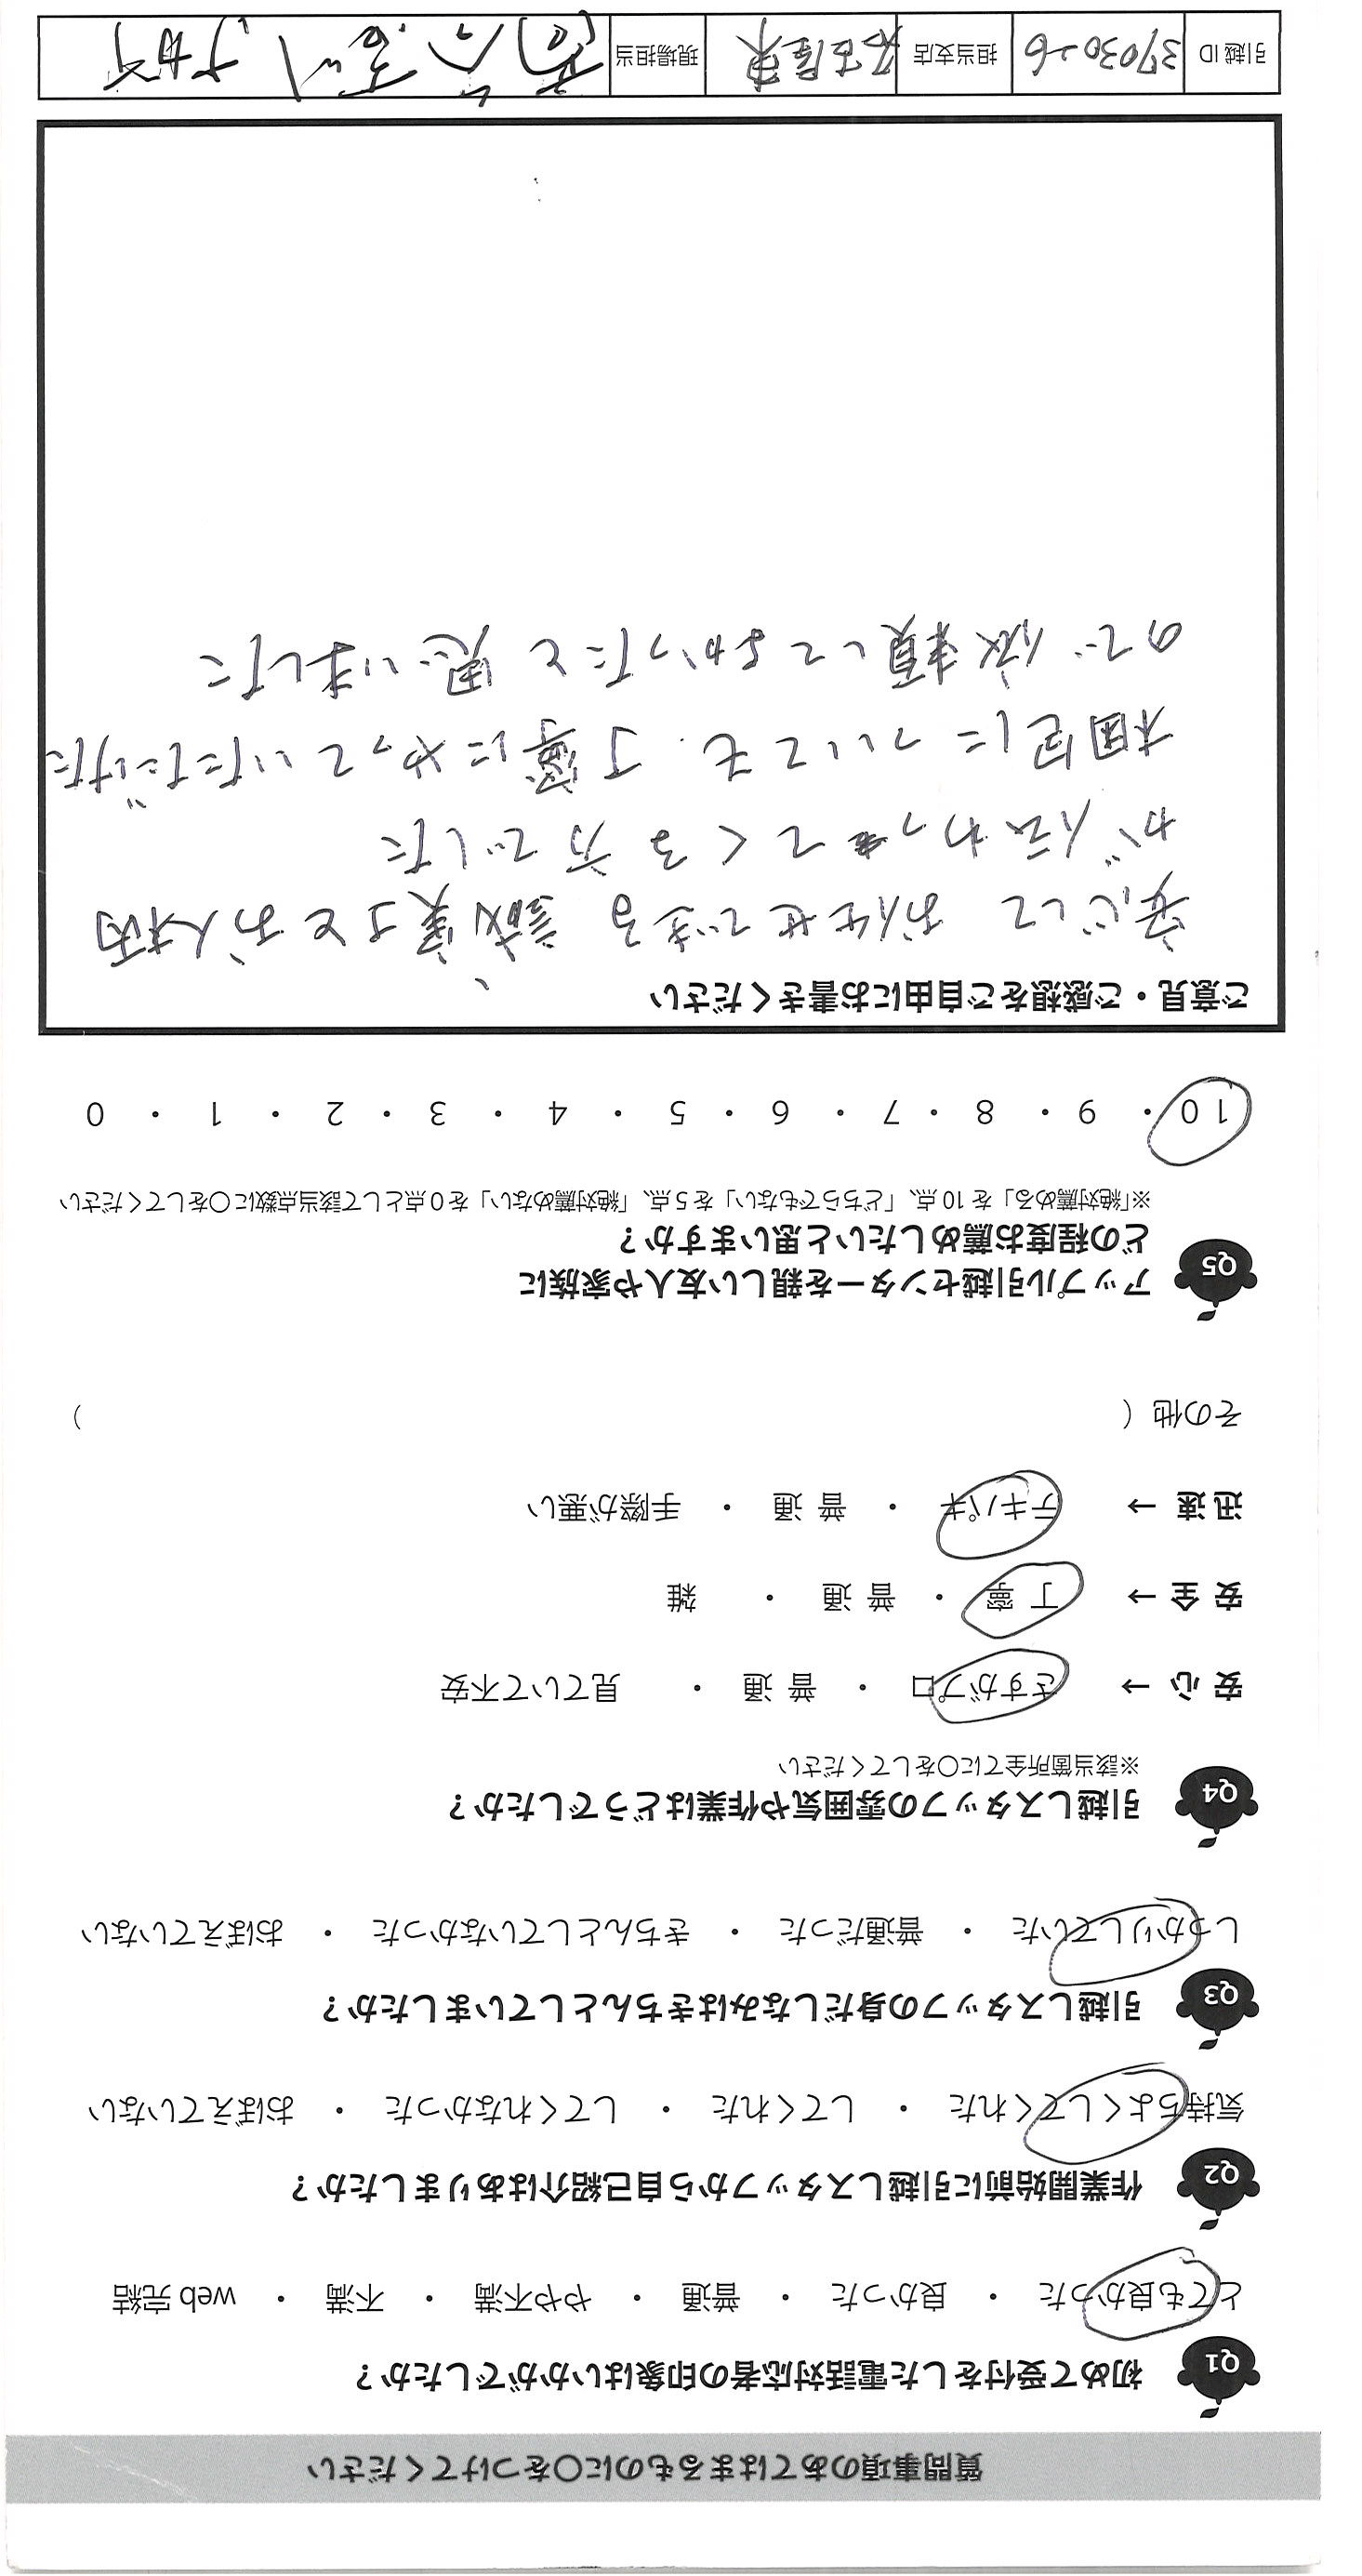 質問事項のあてはまるものに〇をつけてください
Q1 初めて受付をした電話対応者の印象はいかがでしたか？
とても良かった ・ 良かった ・ 普通 ・ やや不満 ・ 不満 ・ web 完結
Q2 作業開始前に引越しスタッフから自己紹介はありましたか？
気持ちよくしてくれた ・ してくれた ・ してくれなかった ・ おぼえていない
Q3 引越しスタッフの身だしなみはきちんとしていましたか？
しっかりしていた ・ 普通だった ・ きちんとしていなかった ・ おぼえていない
Q4 引越しスタッフの雰囲気や作業はどうでしたか？
※該当箇所全てに〇をしてください
安 心 → さすがプロ ・ 普 通 ・ 見ていて不安
安 全 → 丁 寧 ・ 普 通 ・ 雑
迅 速 → テキパキ ・ 普 通 ・ 手際が悪い
その他（ ）
Q5 アップル引越センターを親しい友人や家族に
どの程度お薦めしたいと思いますか？
※「絶対薦める」を 10 点、「どちらでもない」を 5 点、「絶対薦めない」を 0 点として該当点数に〇をしてください
10 ・ 9 ・ 8 ・ 7 ・ 6 ・ 5 ・ 4 ・ 3 ・ 2 ・ 1 ・ 0
ご意見・ご感想をご自由にお書きください
安心して お任せできる 誠実さとお人柄
が伝わってくる方でした
梱包についても 丁寧にやっていただけた
ので 依頼してよかったと思いました
引越 ID 3703026 担当支店 名古屋東 現場担当